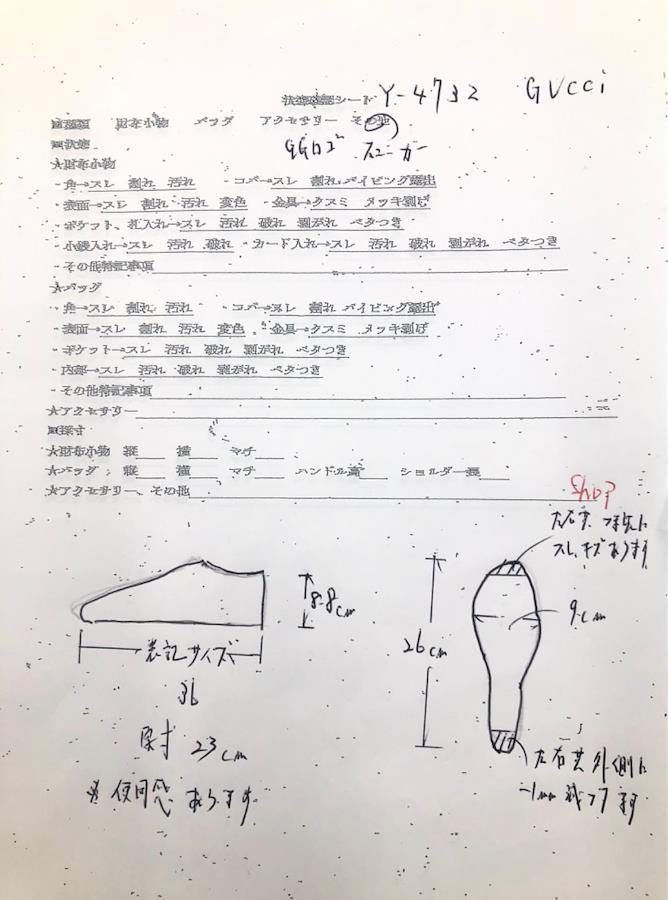 状態確認シート Y-4732 GUCCI
■種類 財布小物 バッグ アクセサリー その他
GGロゴ スニーカー
■状態
★財布小物
・角→スレ 割れ 汚れ ・コバ→スレ 割れ パイピング露出
・表面→スレ 割れ 汚れ 変色 ・金具→クスミ メッキ剥げ
・ポケット、札入れ→スレ 汚れ 破れ 剥がれ ベタつき
・小銭入れ→スレ 汚れ 破れ ・カード入れ→スレ 汚れ 破れ 剥がれ ベタつき
・その他特記事項
★バッグ
・角→スレ 割れ 汚れ ・コバ→スレ 割れ パイピング露出
・表面→スレ 割れ 汚れ 変色 ・金具→クスミ メッキ剥げ
・ポケット→スレ 汚れ 破れ 剥がれ ベタつき
・内部→スレ 汚れ 破れ 剥がれ ベタつき
・その他特記事項
★アクセサリー
■採寸
★財布小物 縦 横 マチ
★バッグ: 縦 横 マチ ハンドル高 ショルダー長
★アクセサリー、その他
左右共 つま先に
スレ、キズあります
8.8cm
26cm
9cm
表記サイズ
36
実寸 23cm
※使用感 あります
左右共 外側に
-1mm 減ってます